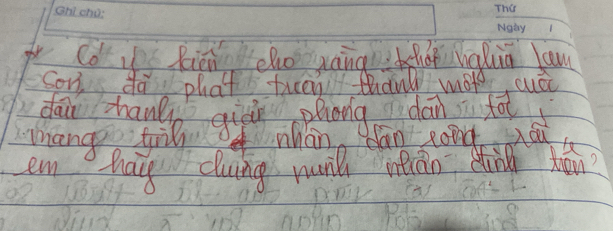 Ghi chú:
Thứ
Ngày
* Có ý kiến cho rằng khởi nghĩa Lam
Sơn đã phát triển thành một cuộc
đấu tranh giải phóng dân tộc
mang tính nhân dân rộng rãi
em hãy chứng minh nhận định trên?